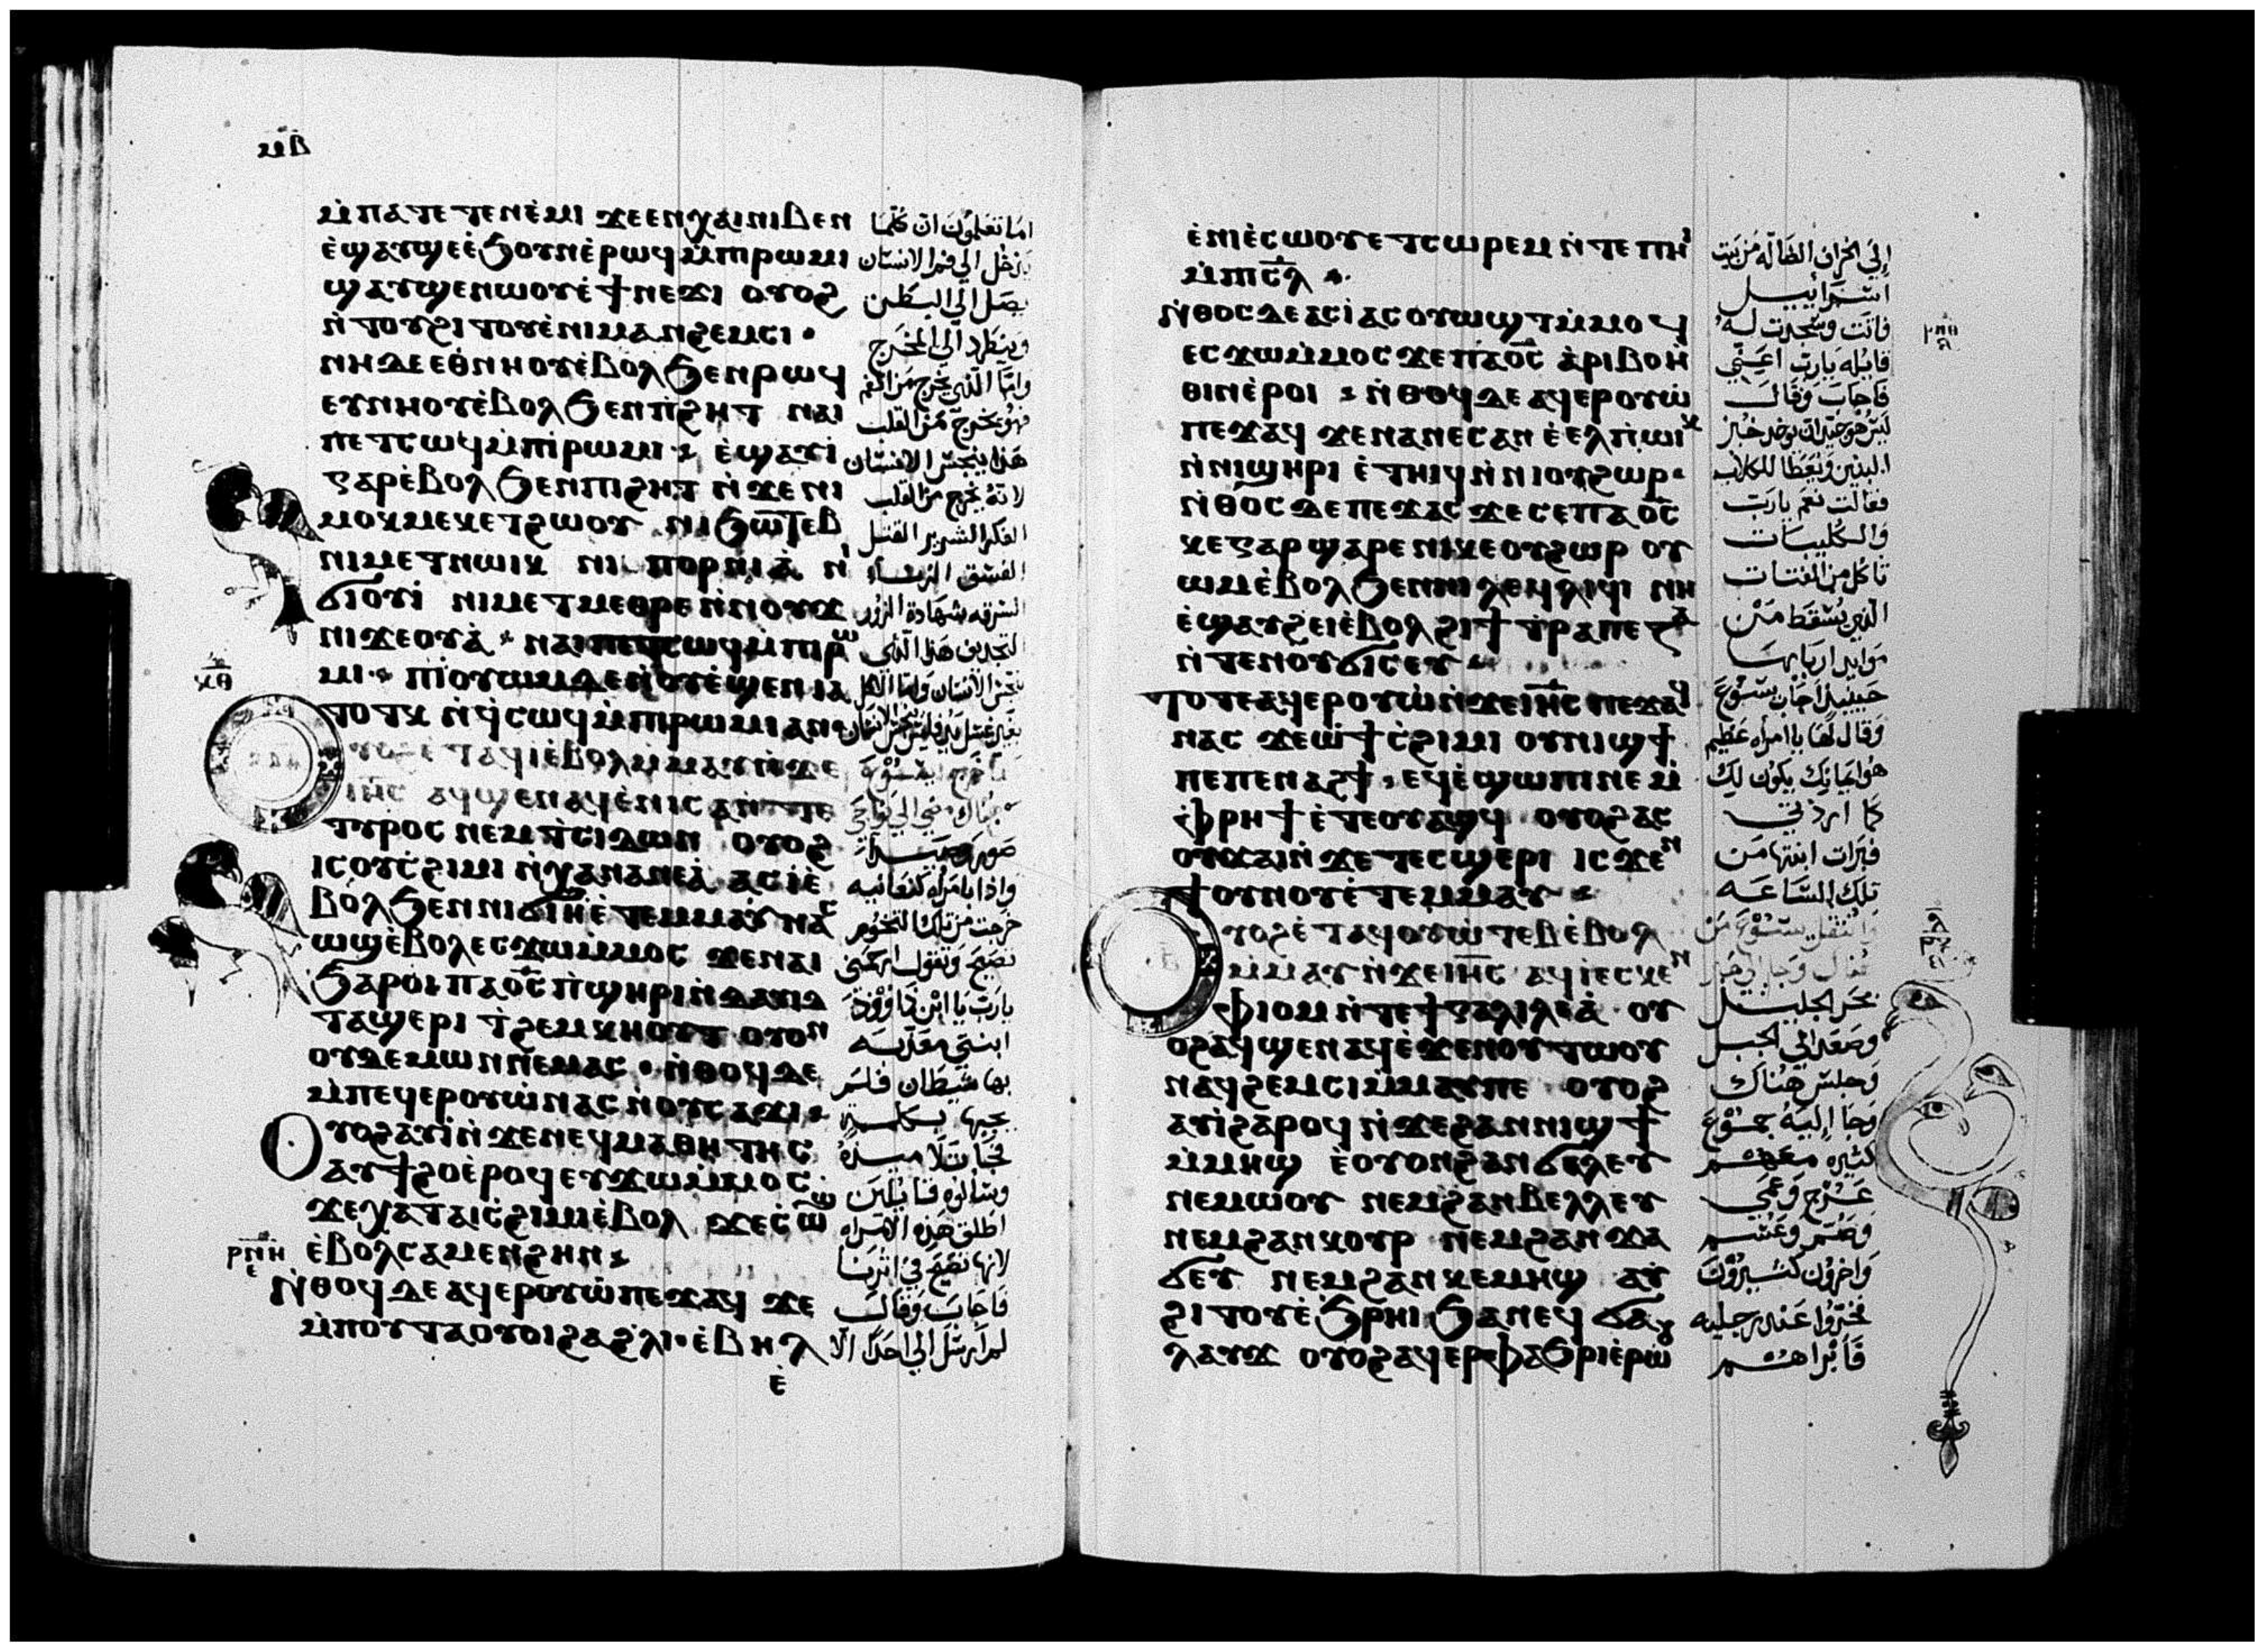 ⲙ︤ⲃ︥
ⲙ̀ⲡⲁⲧⲉⲧⲉⲛⲉ̀ⲙⲓ ϫⲉⲉⲛⲭⲁⲓⲛⲓⲃⲉⲛ
ⲉ̀ϣⲁⲩϣⲉⲉ̀ϧⲟⲩⲛⲉ̀ⲣⲱϥⲙ̀ⲡⲓⲣⲱⲙⲓ
ϣⲁⲩϣⲉⲛⲱⲟⲩⲉ̀ϯⲛⲉϫⲓ ⲟⲩⲟϩ
ⲛ̀ⲧⲟⲩϩⲓⲧⲟⲩⲉ̀ⲛⲓⲙⲁⲛϩⲉⲙⲥⲓ ·
ⲛⲏⲇⲉⲉⲑⲛⲏⲟⲩⲉ̀ⲃⲟⲗϧⲉⲛⲣⲱϥ
ⲉⲩⲛⲏⲟⲩⲉ̀ⲃⲟⲗϧⲉⲛⲡ̀ϩⲏⲧ ⲛⲁⲓ
ⲡⲉⲧⲥⲱϥⲙ̀ⲡⲓⲣⲱⲙⲓ · ⲉ̀ϣⲁⲩⲓ̀
ⲅⲁⲣⲉ̀ⲃⲟⲗϧⲉⲛⲡⲓϩⲏⲧ ⲛ̀ϫⲉⲛⲓ
ⲙⲟⲕⲙⲉⲕⲉⲧϩⲱⲟⲩ ⲛⲓϧⲱⲧⲉⲃ
ⲛⲓⲙⲉⲧⲛⲱⲓⲕ ⲛⲓ ⲡⲟⲣⲛⲓⲁ̀ ⲛⲓ
ϭⲓⲟⲩⲓ̀ ⲛⲓⲙⲉⲧⲙⲉⲑⲣⲉⲛ̀ⲛⲟⲩϫ
ⲛⲓϫⲉⲟⲩⲁ̀ · ⲛⲁⲓⲡⲉⲧⲥⲱϥⲙ̀ⲡⲓⲣⲱ
ⲙⲓ · ⲡⲓⲟⲩⲱⲙⲇⲉⲛ̀ⲟⲩⲉ̀ϣⲉⲛⲓⲁ
ⲧⲟⲧⲕ ⲛ̀ϥ̀ⲥⲱϥⲙ̀ⲡⲓⲣⲱⲙⲓⲁⲛ ·
ⲟⲩⲟϩⲉ̀ⲧⲁϥⲓⲉ̀ⲃⲟⲗⲙ̀ⲙⲁⲩⲛ̀ϫⲉ
ⲓⲏ̅ⲥ ⲁϥϣⲉⲛⲁϥⲉ̀ⲛⲓⲥⲁⲛ̀ⲧⲉ
ⲧⲩⲣⲟⲥ ⲛⲉⲙⲧ̀ⲥⲓⲇⲱⲛ ⲟⲩⲟϩ
ⲓⲥⲟⲩⲥ̀ϩⲓⲙⲓ ⲛ̀ⲭⲁⲛⲁⲛⲉⲁ̀ ⲁⲥⲓ̀ⲉ̀
ⲃⲟⲗϧⲉⲛⲛⲓϭⲓⲏⲉ̀ⲧⲉⲙⲙⲁⲩ ⲛⲁⲥ
ⲱϣⲉ̀ⲃⲟⲗⲉⲥϫⲱⲙ̀ⲙⲟⲥ ϫⲉⲛⲁⲓ
ϧⲁⲣⲟⲓ ⲡⲁⲟ̅ⲥ̅ ⲡ̀ϣⲏⲣⲓⲛ̀ⲇⲁⲩⲓⲇ
ⲧⲁϣⲉⲣⲓ ⲧ̀ϩⲉⲙⲕⲏⲟⲩⲧ ⲟⲩⲟⲛ
ⲟⲩⲇⲉⲙⲱⲛⲛⲉⲙⲁⲥ · ⲛ̀ⲑⲟϥⲇⲉ
ⲙ̀ⲡⲉϥⲉⲣⲟⲩⲱ̀ⲛⲁⲥ ⲛ̀ⲟⲩⲥⲁϫⲓ ·
ⲟⲩⲟϩⲁⲩⲓ̀ⲛ̀ϫⲉⲛⲉϥⲙⲁⲑⲏⲧⲏⲥ
ⲁⲩϯϩⲟⲉ̀ⲣⲟϥⲉⲩϫⲱⲙ̀ⲙⲟⲥ ·
ϫⲉⲭⲁⲧⲁⲓⲥ̀ϩⲓⲙⲓⲉ̀ⲃⲟⲗ ϫⲉⲥ̀ⲱϣ
ⲣ︤ⲛ︥ⲏ
ⲉ̀ⲃⲟⲗⲥⲁⲙⲉⲛϩⲏⲛ ·
ⲛ̀ⲑⲟϥⲇⲉⲁϥⲉⲣⲟⲩⲱ̀ⲡⲉϫⲁϥ ϫⲉ
ⲙ̀ⲡⲟⲩⲧⲁⲟⲩⲟⲓϩⲁϩⲗⲓ · ⲉ̀ⲃⲏⲗ
ⲉ̀
اما تعلمون ان كلما
يدخل الي فم الانسان
يصل الي البطن
وينطرد الي المخرج
واما الذي يخرج من الفم
فهو يخرج من القلب
هذا ينجس الانسان
لانه يخرج من القلب
الفكر الشرير القتل
الفسق الزنا
السرقه شهادة الزور
التجديف هذا الذي
ينجس الانسان واما الاكل
بغير غسل يد فليس ينجس الانسان
صور وصيدا
واذا بامراه كنعانيه
خرجت من تلك التخوم
تصيح وتقول ارحمني
يارب يا ابن داوود
ابنتي معذبه
بها شيطان فلم
يجبها بكلمه
فجا تلاميذه
وسالوه قايلين
اطلق هذه الامراه
لانها تصيح في اثرنا
فاجاب وقال
لم ارسل الي احد الا
ⲉ̀ⲛⲓⲉ̀ⲥⲱⲟⲩⲉⲧⲥⲱⲣⲉⲙ ⲛ̀ⲧⲉⲡⲏⲓ
ⲙ̀ⲡⲓⲥ̅ⲗ ·
ⲛ̀ⲑⲟⲥⲇⲉⲁⲥⲓ̀ⲁⲥⲟⲩⲱϣⲧⲙ̀ⲙⲟϥ
ⲉⲥϫⲱⲙ̀ⲙⲟⲥ ϫⲉⲡⲁⲟ̅ⲥ̅ ⲁ̀ⲣⲓⲃⲟⲏ̀
ⲑⲓⲛⲉ̀ⲣⲟⲓ · ⲛ̀ⲑⲟϥⲇⲉⲁϥⲉⲣⲟⲩⲱ̀
ⲡⲉϫⲁϥ ϫⲉⲛⲁⲛⲉⲥⲁⲛ ⲉ̀ⲉⲗⲡ̀ⲱⲓⲕ
ⲛ̀ⲛⲓϣⲏⲣⲓ ⲉ̀ⲧⲏⲓϥⲛ̀ⲛⲓⲟⲩϩⲱⲣ ·
ⲛ̀ⲑⲟⲥⲇⲉⲡⲉϫⲁⲥ ϫⲉⲥⲉⲡⲁⲟ̅ⲥ̅
ⲕⲉⲅⲁⲣ ϣⲁⲣⲉⲛⲓⲕⲉⲟⲩϩⲱⲣ ⲟⲩ
ⲱⲙⲉ̀ⲃⲟⲗϧⲉⲛⲛⲓⲗⲉϥⲗⲓϥⲓ ⲛⲏ
ⲉ̀ϣⲁⲩϩⲉⲓⲉ̀ⲃⲟⲗϩⲓϯⲧ̀ⲣⲁⲡⲉⲍⲁ
ⲛ̀ⲧⲉⲛⲟⲩϭⲓⲥⲉⲩ ·
ⲧⲟⲧⲉⲁϥⲉⲣⲟⲩⲱ̀ⲛ̀ϫⲉⲓⲏ̅ⲥ ⲡⲉϫⲁϥ
ⲛⲁⲥ ϫⲉⲱ̀ϯⲥ̀ϩⲓⲙⲓ ⲟⲩⲛⲓϣϯ
ⲡⲉⲡⲉⲛⲁϩϯ · ⲉϥⲉ̀ϣⲱⲡⲓⲛⲉ ⲙ̀
ⲫ̀ⲣⲏϯ ⲉ̀ⲧⲉⲟⲩⲁϣϥ ⲟⲩⲟϩⲁⲥ
ⲟⲩϫⲁⲓⲛ̀ϫⲉⲧⲉⲥϣⲉⲣⲓ ⲓⲥϫⲉⲛ
ϯⲟⲩⲛⲟⲩⲉ̀ⲧⲉⲙⲙⲁⲩ ·
ⲟⲩⲟϩⲉ̀ⲧⲁϥⲟⲩⲱ̀ⲧⲉⲃⲉ̀ⲃⲟⲗ
ⲙ̀ⲙⲁⲩⲛ̀ϫⲉⲓⲏ̅ⲥ ⲁϥⲓⲉⲥⲕⲉⲛ
ⲫ̀ⲓⲟⲙⲛ̀ⲧⲉϯⲅⲁⲗⲓⲗⲉⲁ̀ ⲟⲩ
ⲟϩⲁϥϣⲉⲛⲁϥⲉ̀ϫⲉⲛⲟⲩⲧⲱⲟⲩ
ⲛⲁϥϩⲉⲙⲥⲓⲙ̀ⲙⲁⲩⲡⲉ ⲟⲩⲟϩ
ⲁⲩⲓ̀ϩⲁⲣⲟϥ ⲛ̀ϫⲉϩⲁⲛⲛⲓϣϯ
ⲙ̀ⲙⲏϣ ⲉ̀ⲟⲩⲟⲛϩⲁⲛϭⲁⲗⲉⲩ
ⲛⲉⲙⲱⲟⲩ ⲛⲉⲙϩⲁⲛⲃⲉⲗⲗⲉⲩ
ⲛⲉⲙϩⲁⲛⲕⲟⲩⲣ ⲛⲉⲙϩⲁⲛϫⲁ
ϭⲉⲩ ⲛⲉⲙϩⲁⲛⲕⲉⲙⲏϣ ⲁⲩ
ϩⲓⲧⲟⲩⲉ̀ϧⲣⲏⲓ ϧⲁⲛⲉϥϭⲁ
ⲗⲁⲩϫ ⲟⲩⲟϩⲁϥⲉⲣⲫⲁϧⲣⲓⲉ̀ⲣⲱⲟⲩ
الي الخراف الضاله من بيت
اسراييل
فاتت وسجدت له
قايله يارب اعيني
فاجاب وقال
ليس هو جيد ان يوخذ خبز
البنين ويعطا للكلاب
فقالت نعم يارب
والكليبات
تاكل من الفتات
الذي يسقط من
موايد اربابها
حينيذ اجاب يسوع
وقال لها يا امراه عظيم
هو ايمانك يكون لك
كما اردتي
فبرات ابنتها من
تلك الساعه
بحر الجليل
وصعد الي الجبل
وجلس هناك
وجا اليه جموع
كثيره معهم
عرج وعمي
وصم وعسم
واخرون كثيرون
فخروا عند رجليه
فابراهم